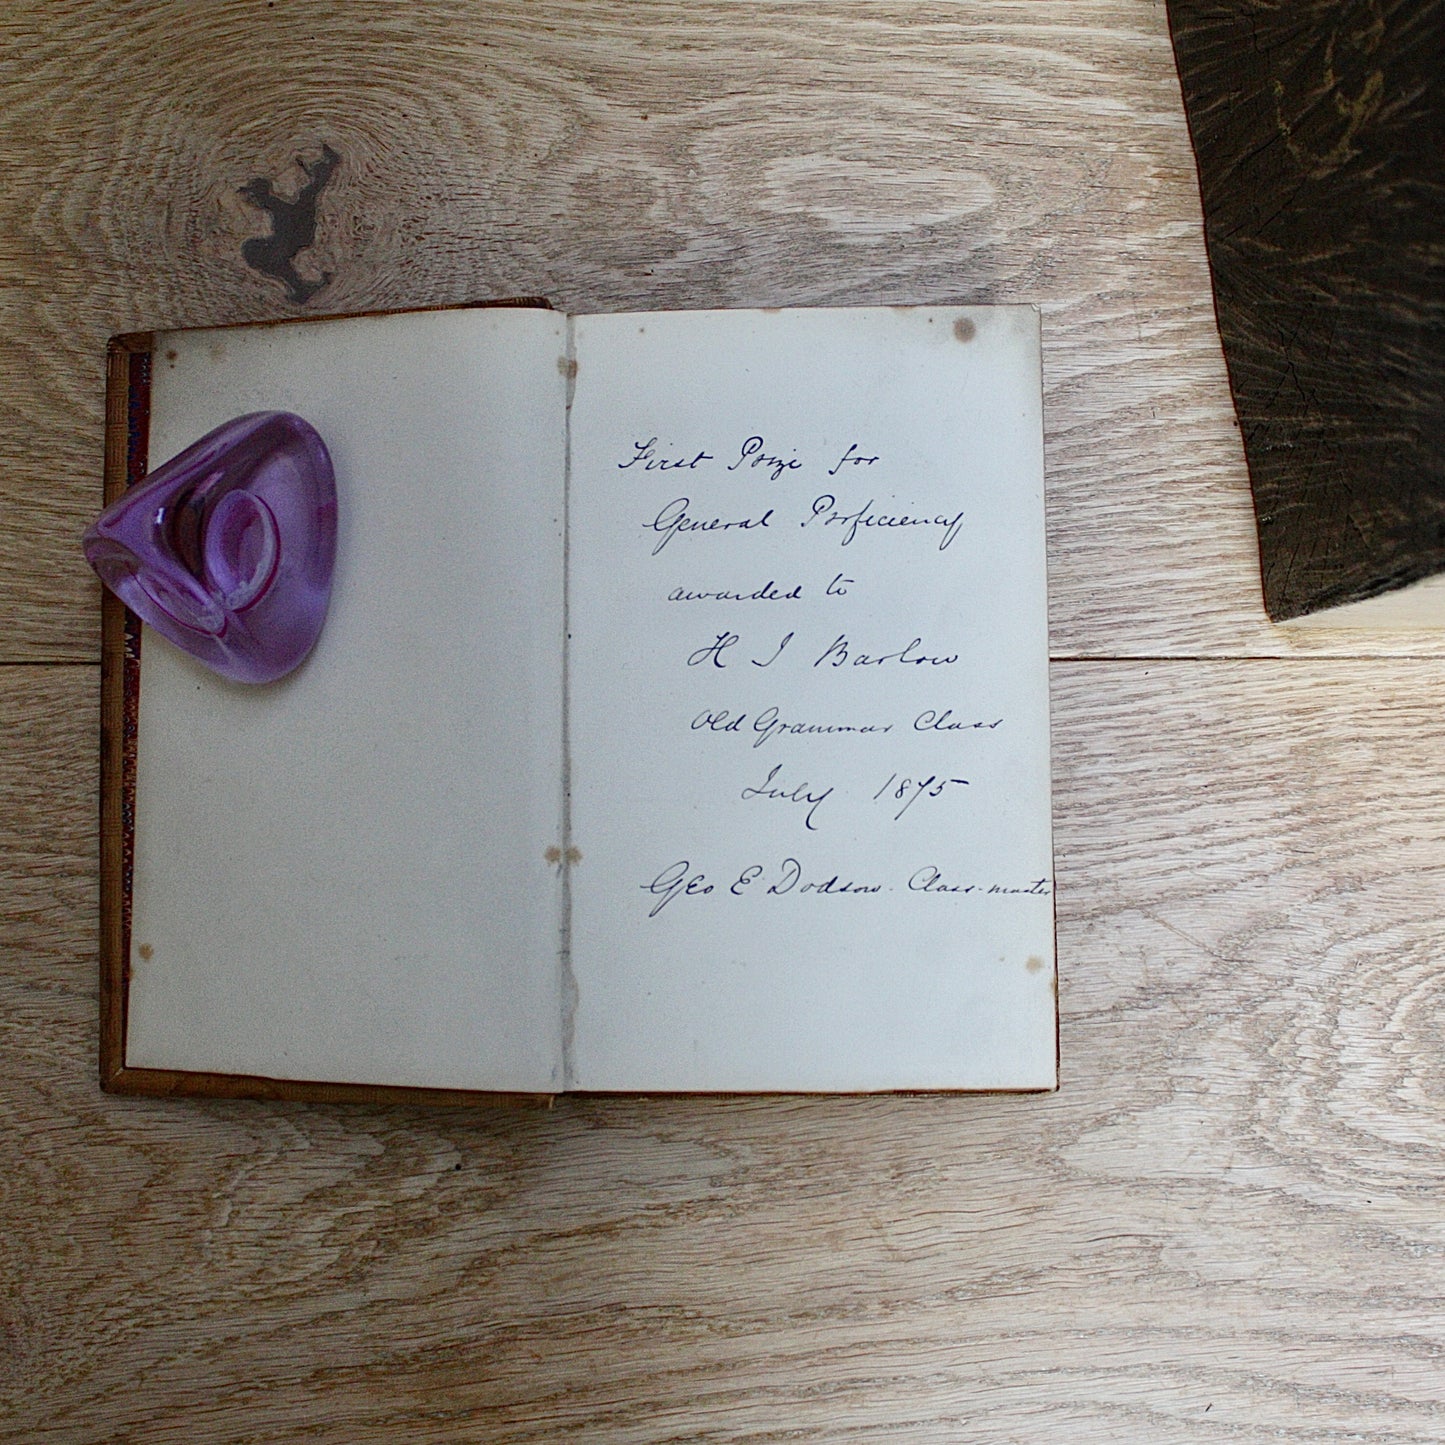 First Prize for
General Proficiency
awarded to
H I Barlow
Old Grammar Class
July 1875
Geo E Dodson. Class-master